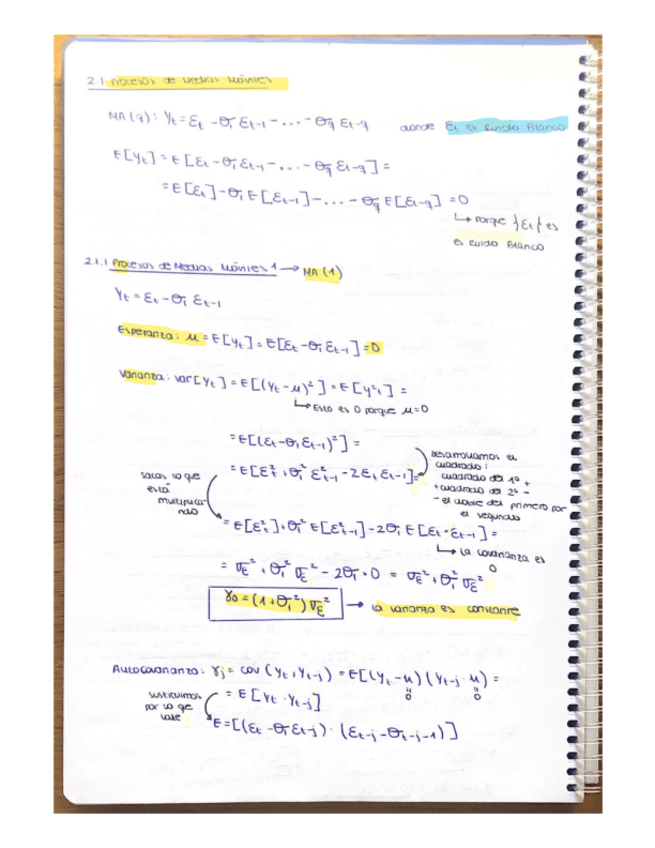 2.1 Procesos de Medias Móviles
MA(q): Yt = εt - θ1 εt-1 - ... - θq εt-q donde εt es Ruido Blanco
E[yt] = E[εt - θ1 εt-1 - ... - θq εt-q] =
= E[εt] - θ1 E[εt-1] - ... - θq E[εt-q] = 0
↳ Porque {εt} es
es ruido Blanco
2.1.1 Procesos de Medias Móviles 1 → MA(1)
Yt = εt - θ1 εt-1
Esperanza: μ = E[yt] = E[εt - θ1 εt-1] = 0
Varianza: var[yt] = E[(yt - μ)²] = E[y²t] =
↳ Esto es 0 porque μ=0
= E[(εt - θ1 εt-1)²] =
desarrollamos el
cuadrado:
cuadrado del 1º +
+ cuadrado del 2º -
- el doble del primero por
el segundo
= E[εt² + θ1² ε²t-1 - 2εt εt-1] =
sacas lo que
está
multiplica-
ndo
= E[εt²] + θ1² E[ε²t-1] - 2θ1 E[εt · εt-1] =
↳ La covarianza es
0
= σε² + θ1² σε² - 2θ1 · 0 = σε² + θ1² σε²
γ0 = (1 + θ1²) σε² → La varianza es constante
Autocovarianza: γj = cov(yt, yt-j) = E[(yt - μ)(yt-j · μ) =
0 0
= E[yt · yt-j]
sustituimos
por lo que
vale
E = [(εt - θ1 εt-j) · (εt-j - θ1-j-1)]